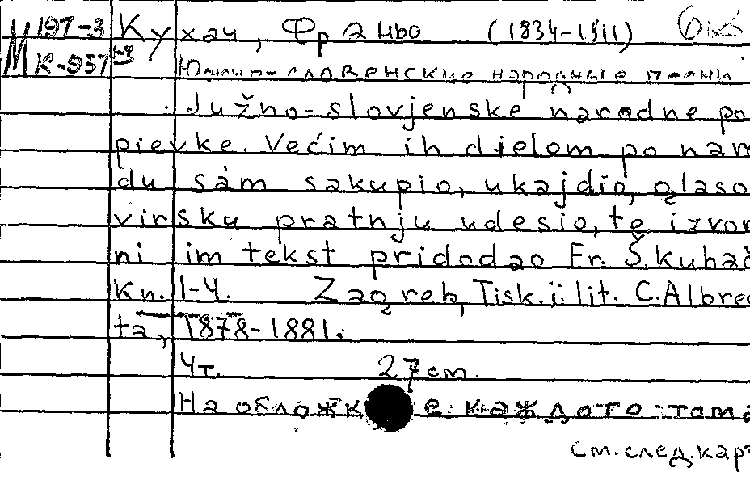 М 197-3 Кухач, Франьо (1834-1911)
К-957 1-4 Южно-словенские народные песни.
Južno-slovjenske narodne po
pievke. Većim ih dielom po nam
du sám sakupio, ukajdio, glaso
virsku pratnju udesio, te izvor
ni im tekst pridodao Fr. Š. Kuhač
Kn. 1-4. Zagreb, Tisk. i lit. C. Albrec
ta, 1878-1881.
4 т. 27 см.
На обложк е каждого тома
см. след. кар